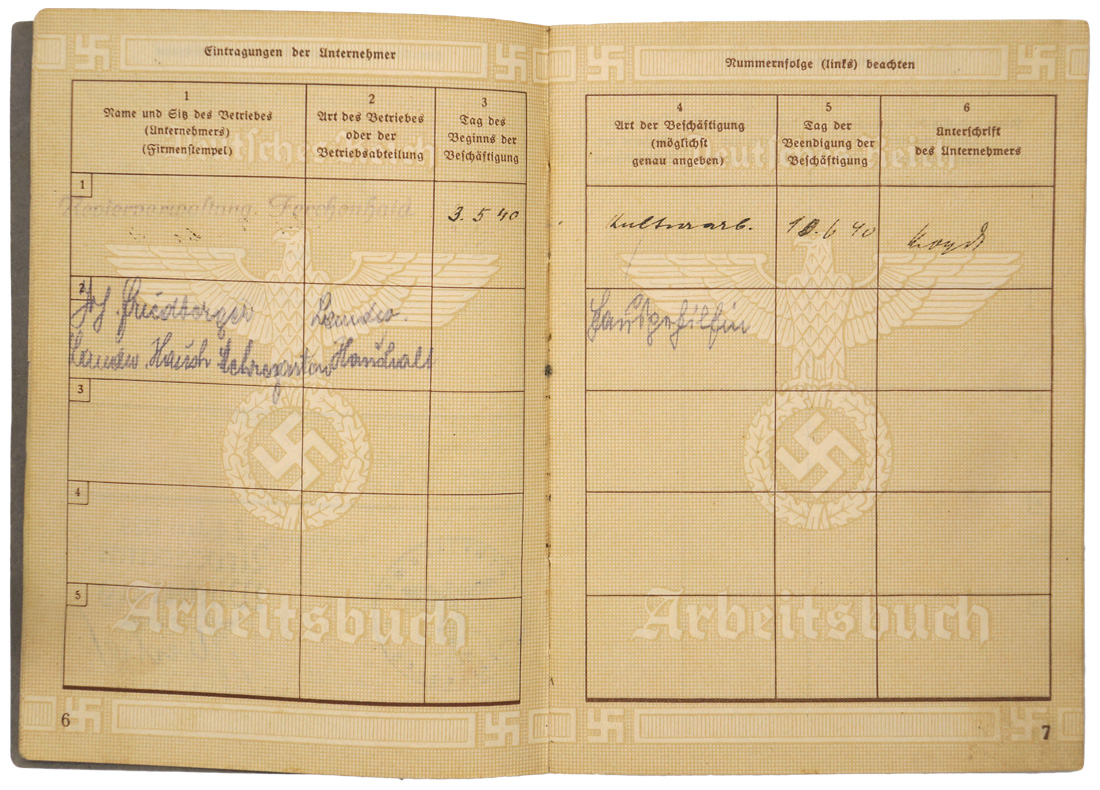 Eintragungen der Unternehmer
1
Name und Sitz des Betriebes
(Unternehmers)
(Firmenstempel)
2
Art des Betriebes
oder der
Betriebsabteilung
3
Tag des
Beginns der
Beschäftigung
Deutsches Reich
1
Revierverwaltung
3. 5 40
2
Joh. Friedberger
Landw.
Haushalt
3
4
5
Arbeitsbuch
6
Nummernfolge (links) beachten
4
Art der Beschäftigung
(möglichst
genau angeben)
5
Tag der
Beendigung der
Beschäftigung
6
Unterschrift
des Unternehmers
Deutsches Reich
Kulturarb.
10. 6 40
Hausgehilfin
Arbeitsbuch
7